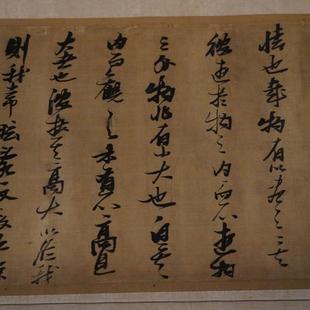 情也哉物有以盖之矣
彼遊於物之内而不遊於物
之外物非有大也自其
内而觀之未有不高且
大者也彼挾其高大以臨我
則我常眩亂反覆